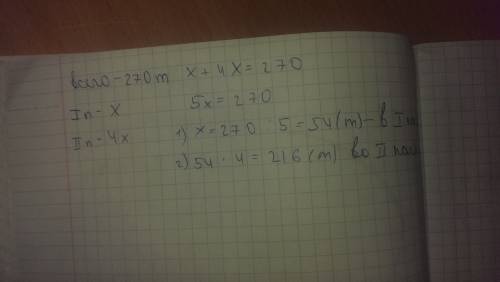 всего - 270 т x + 4x = 270
I п - x 5x = 270
II п - 4x 1) x = 270 : 5 = 54 (т) - в I п
2) 54 · 4 = 216 (т) во II